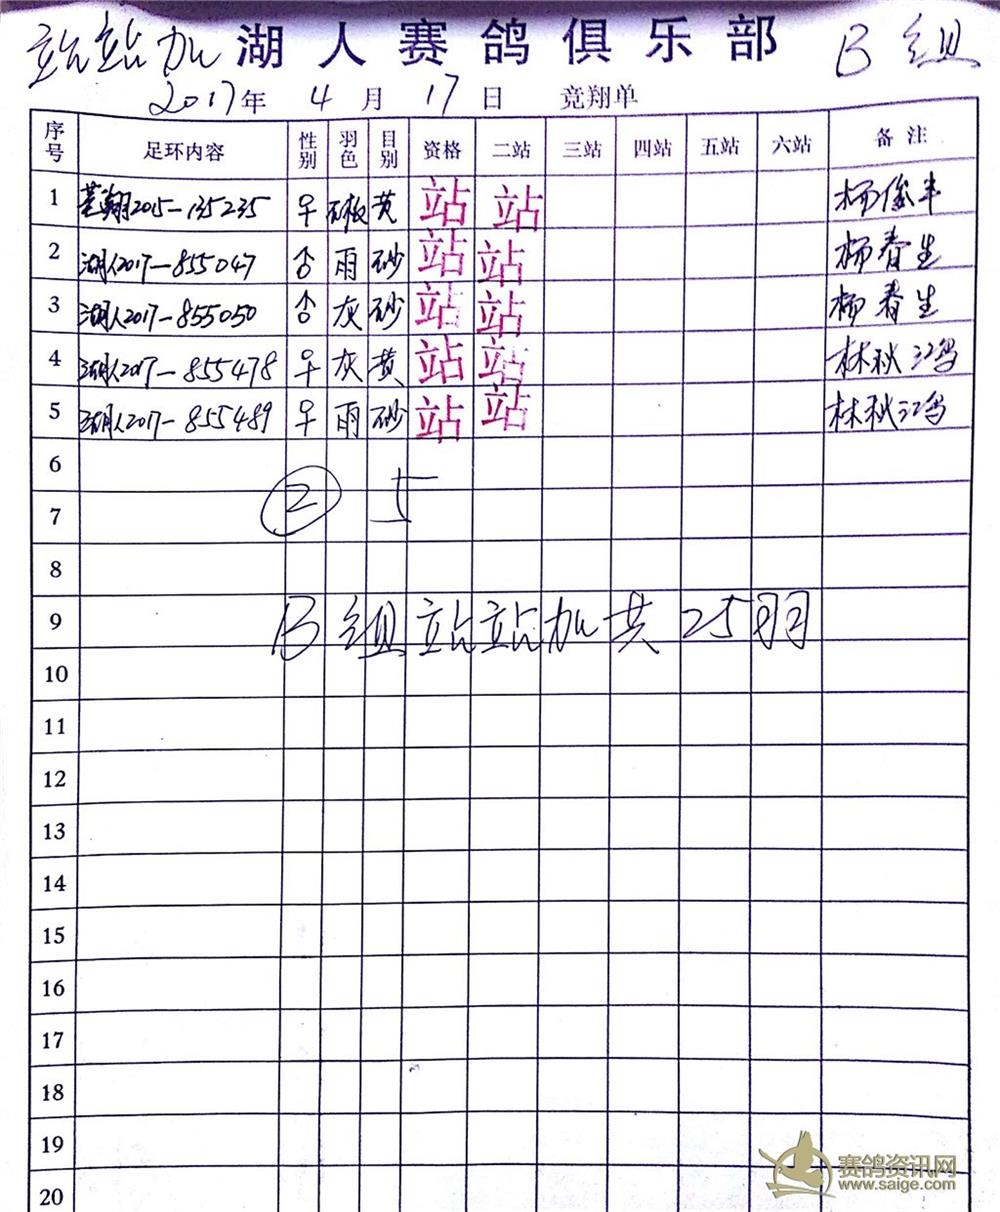 站站加 湖人赛鸽俱乐部 B组
2017年 4月 17日 竞翔单
序号 足环内容 性别 羽色 目别 资格 二站 三站 四站 五站 六站 备注
1 翔2015-135235 站 站 杨俊丰
2 湖人2017-855047 雨 砂 站 站 杨春生
3 湖人2017-855050 灰 砂 站 站 杨春生
4 湖人2017-855478 灰 黄 站 站 林秋鸿
5 湖人2017-855489 雨 砂 站 站 林秋鸿
6
② 5
7
8
9 B组站站加共25羽
10
11
12
13
14
15
16
17
18
19
20
赛鸽资讯网
www.saige.com